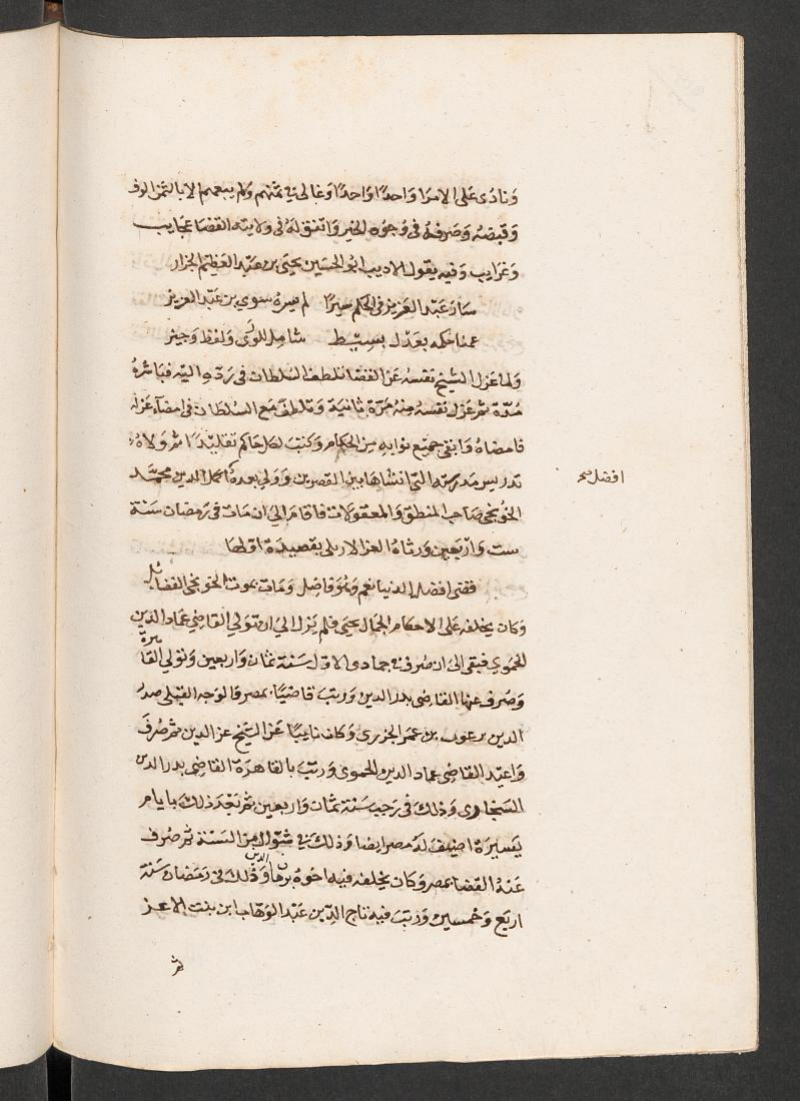 ونادى على الامرا واحدًا واحدًا وغالى في ثمنهم ولم يبعهم الا بالثمن الوفـ
وقبضه وصرفه في وجوه الخير واتفق له في ولايته القضا عجايب
وغرايب وفيه يقول الاديب ابو الحسين يحيى بن عبد العظيم الجزار
سار عبد العزيز في الحكم سيرًا لم يسره سوى بن عبد العزيز
عمنا حكمه بعدل بسيط شامل للورى ولفظ وجيز
ولما عزل الشيخ نفسه عن القضا تلطف السلطان في رده اليه فباشره
مدة ثم عزل نفسه منه مرة ثانية وتلطف مع السلطان في امضاء عزله
فامضاه وابقى جميع نوابه من الحكام وكتب لكل حاكم تقليدًا ثم ولاه
تدريس مدرسته التي انشاها بين القصرين وولي بعده اكمل الدين محمد
افضل صح
الخونجى صاحب المنطق والمعقولات فاقام الى ان مات في رمضان سنة
ست واربعين ورثاه العز الاربلي بقصيدة اولها
قضى افضل الدنيا نعم وهو فاضل ومات بموت الخونجى الفضائل
وكان يخلفه على الاحكام الجمال يحيى فلم يزل الى ان تولي القاضي عماد الدين
الحموي فبقى الى ان صرف في جمادى الاول سنة ثمان واربعين وتولي القاهرة
وصرف عنها القاضي بدر الدين ورتب قاضيًا بمصر والوجه القبلي صدر
الدين موهوب بن عمر الجزري وكان نايبًا عن الشيخ عز الدين ثم صرف
واعيد القاضي عماد الدين الحموي ورتب بالقاهرة القاضي بدر الدين
السنجاري وذلك في رجب سنة ثمان واربعين ثم بعد ذلك بايام
يسيرة اضيف له مصر ايضا وذلك في شوال من السنة ثم صرف
عنه القضا بمصر وكان يخلفه فيه اخوه برهان الدين وذلك في رمضان سنة
اربع وخمسين ورتب فيه تاج الدين عبد الوهاب ابن بنت الاعز
ثم